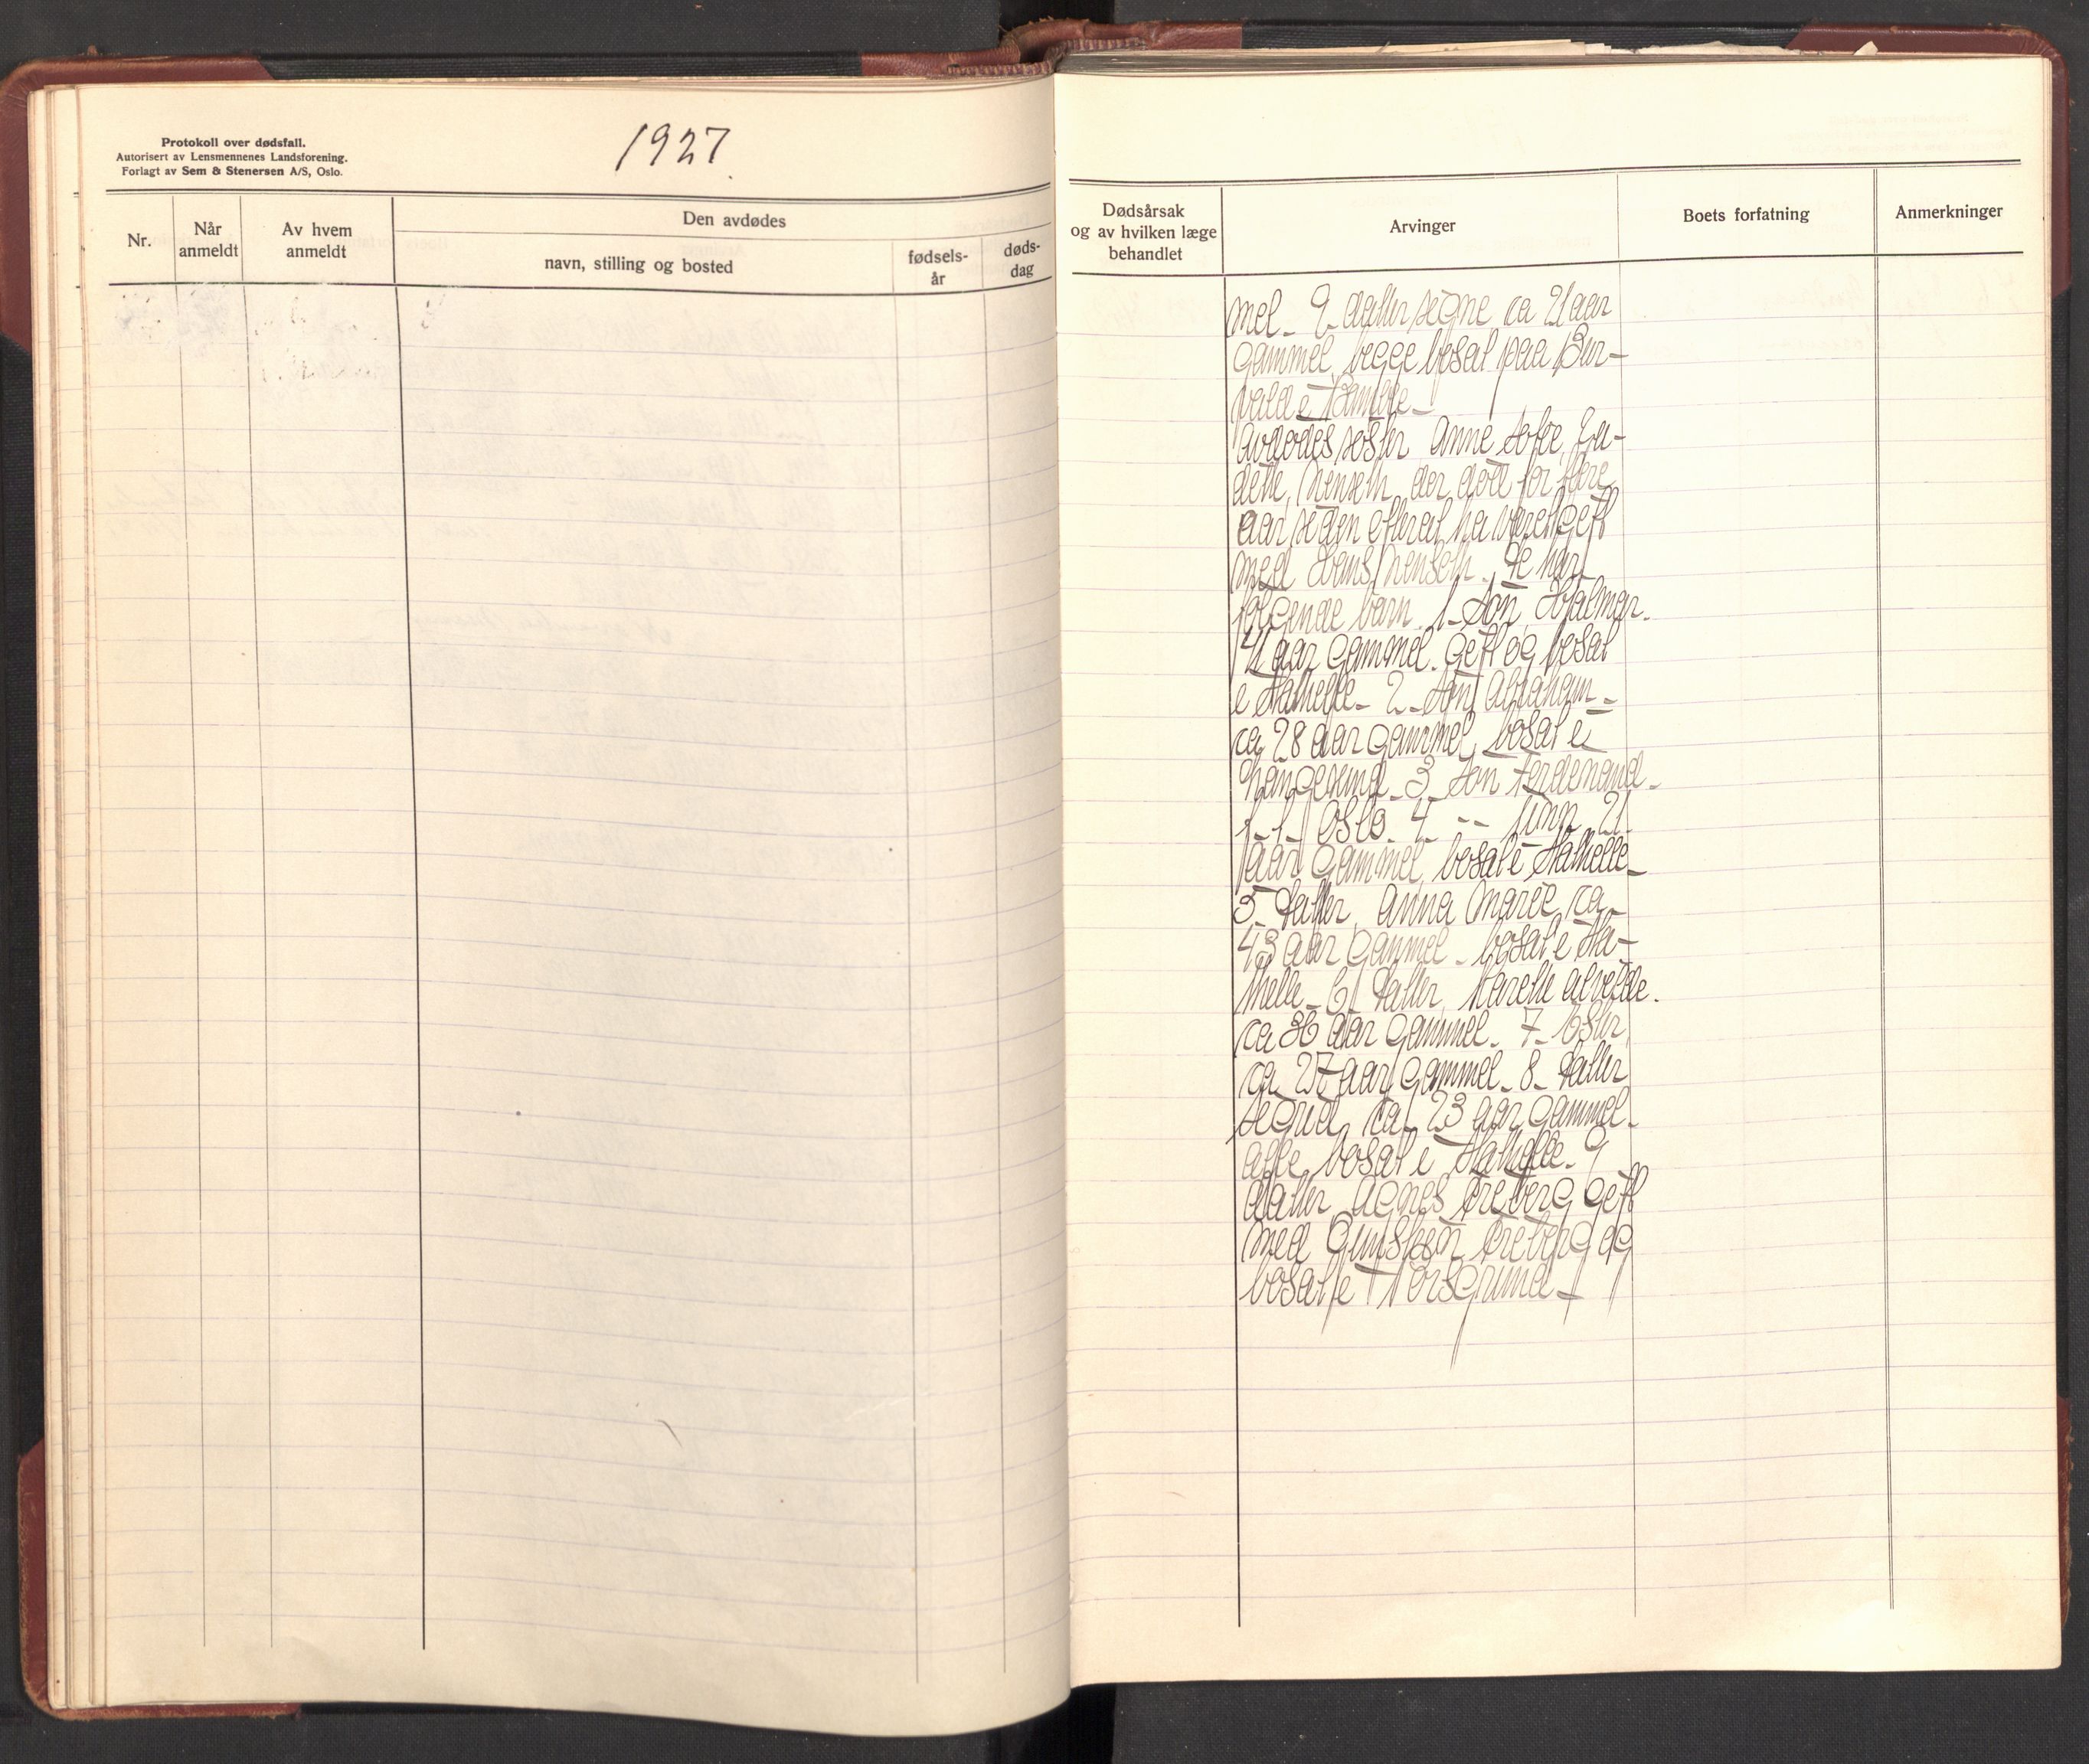 Protokoll over dødsfall.
Autorisert av Lensmennenes Landsforening.
Forlagt av Sem & Stenersen A/S, Oslo.
1927.
Nr.
Når anmeldt
Av hvem anmeldt
Den avdødes
navn, stilling og bosted
fødsels-
år
døds-
dag
Dødsårsak
og av hvilken læge
behandlet
Arvinger
Boets forfatning
Anmerkninger
mel - 9 datter Signe ca 21 aar
gammel, begge bosat paa Bur-
vald i Bamble -
Avdødes søster Anne Sofie
dette, der døde for flere
aar siden efterat ha været gift
med Hans De har
følgende barn. 1- Søn, Hjalmar.
41 aar gammel. gift og bosat
i Stathelle - 2 - Søn Abraham -
ca 28 aar gammel, bosat i
Langesund - 3 - Søn Ferdinand -
i Oslo. 4 -- Finn 21
aar gammel, bosat i Stathelle -
5 - Datter, Anna Marie, ca -
43 aar gammel - bosat i Sta-
thelle - 6 Datter, Karelle Alvilde.
ca 36 aar gammel - 7 - Ester,
ca 27 aar gammel - 8 - Datter
Sigrid, ca 23 aar gammel -
alle bosat i Stathelle - 9
datter Agnes Treberg gift
med Treberg og
bosat i Porsgrund -